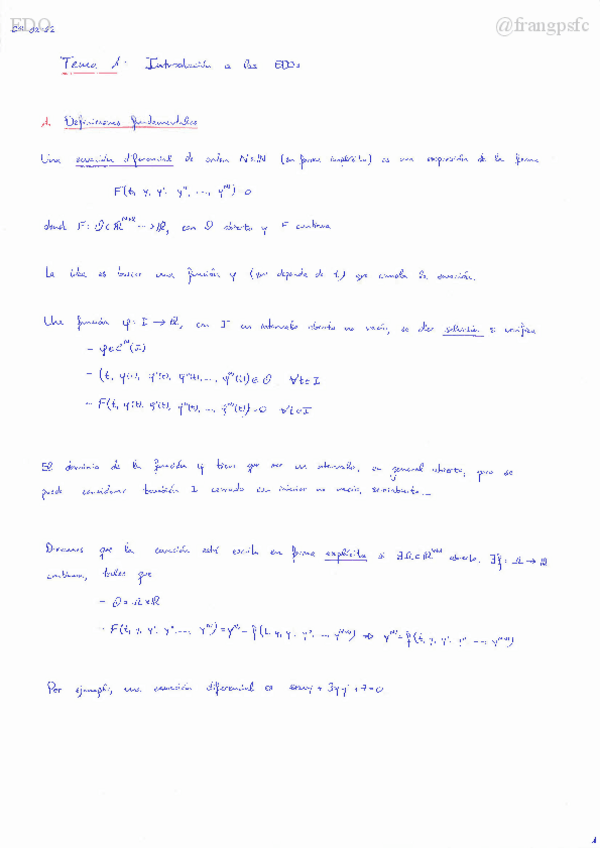 EDO
@frangpsfc
Tema 1: Introducción a las EDOs
1. Definiciones fundamentales
Una ecuación diferencial de orden N∈ℕ (en forma implícita) es una expresión de la forma
F(t, y, y', y'', ..., y^(N)) = 0
donde F: 𝒪⊂ℝ^(N+2) → ℝ, con 𝒪 abierto y F continua
La idea es buscar una función y (que depende de t) que cumpla la ecuación.
Una función φ: I → ℝ, con I un intervalo abierto no vacío, se dice solución si verifica
- φ∈C^N(I)
- (t, φ(t), φ'(t), φ''(t), ..., φ^(N)(t)) ∈ 𝒪 ∀t∈I
- F(t, φ(t), φ'(t), φ''(t), ..., φ^(N)(t)) = 0 ∀t∈I
El dominio de la función φ tiene que ser un intervalo, en general abierto, pero se
puede considerar también I cerrado con interior no vacío, semiabierto...
Diremos que la ecuación está escrita en forma explícita si ∃Ω⊂ℝ^(N+1) abierto, ∃f: Ω → ℝ
continua, tales que
- 𝒪 = Ω×ℝ
- F(t, y, y', y'', ..., y^(N)) = y^(N) - f(t, y, y', y'', ..., y^(N-1)) ⇒ y^(N) = f(t, y, y', y'', ..., y^(N-1))
Por ejemplo, una ecuación diferencial es + 3yy' + 7 = 0
1